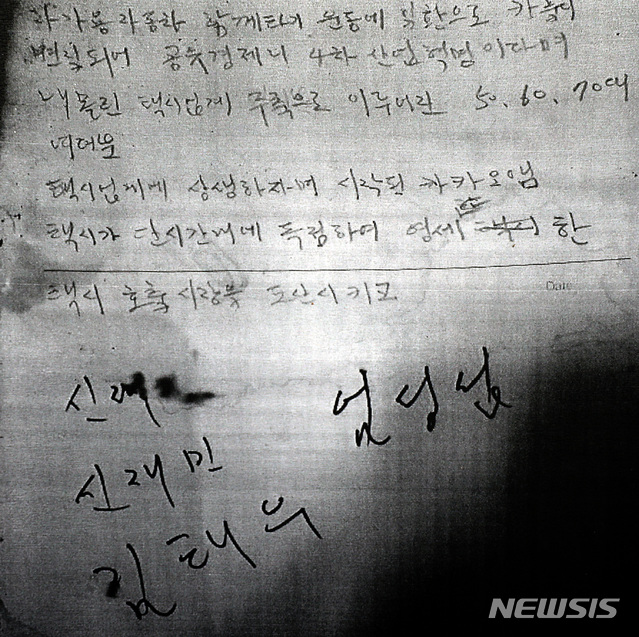 자가용자동차 함께타기 운동에 일환으로 카풀이
변질되어 공유경제니 4차 산업혁명 이다며
내몰린 택시업계 주축으로 이루어진 50. 60. 70대
택시업계에 상생하자며 시작된 카카오앱
택시가 단시간내에 독점하여 영세 한
Date
택시 호출시장을 도산시키고
신재
임정남
신재민
김태우
NEWSIS